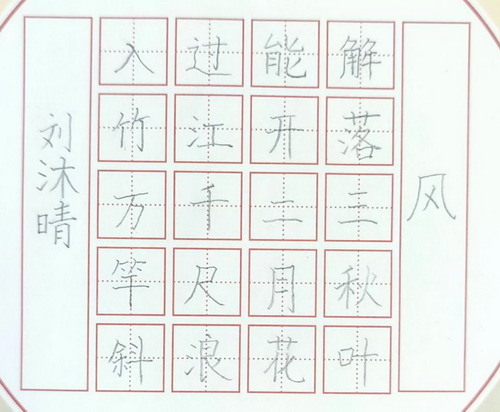 风
解落三秋叶
能开二月花
过江千尺浪
入竹万竿斜
刘沐晴